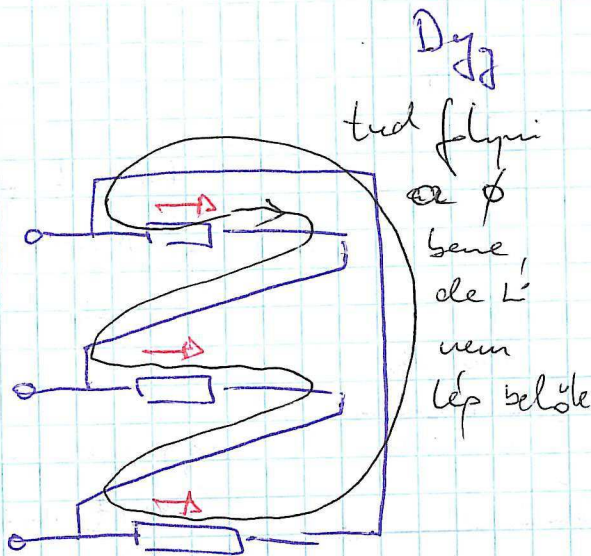 Dy
tud folyni
a ϕ
bene,
de
nem
lép belőle